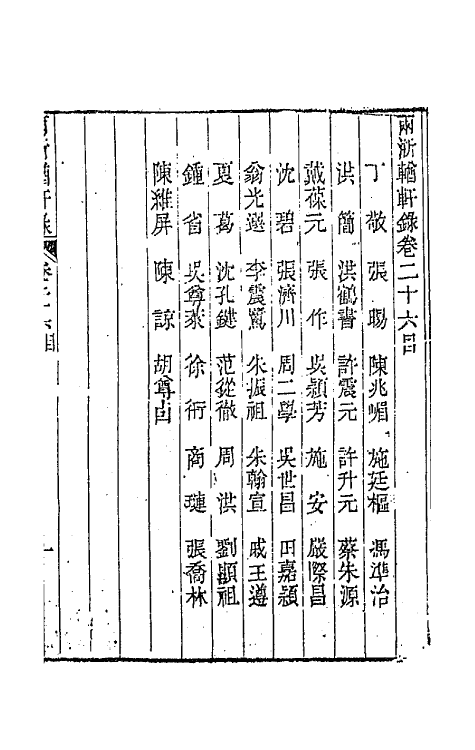 兩浙輶軒錄卷二十六目
丁敬 張賜 陳兆崏 施廷樞 馮準治
洪簡 洪鶴書 許震元 許升元 蔡朱源
戴葆元 張作 吳頴芳 施安 嚴際昌
沈碧 張濟川 周二學 吳世昌 田嘉頴
翁光 李震 朱振祖 朱翰宣 戚王遵
夏葛 沈孔鍵 范從徹 周洪 劉顯祖
鍾省 吳尊萊 徐衍 商璉 張喬林
陳維屏 陳諒 胡尊
兩浙輶軒錄 卷二十六目 一